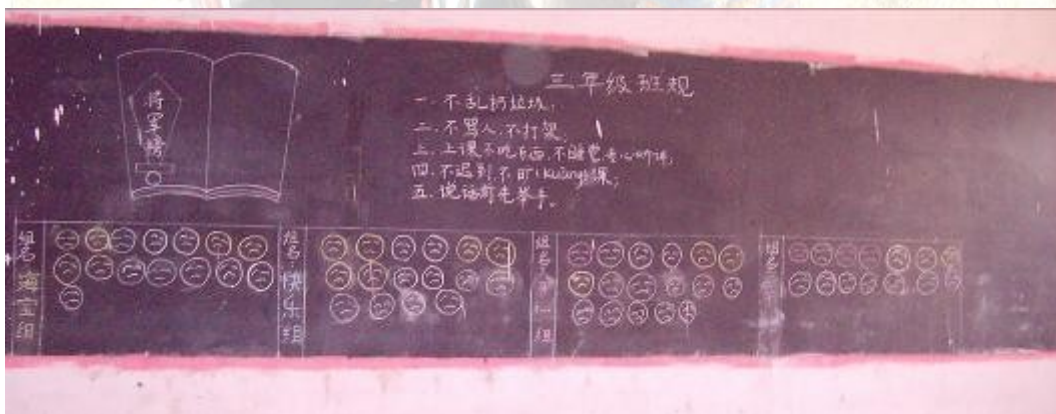 将军榜
三年级班规
一.不乱扔垃圾.
二.不骂人.不打架.
三.上课不吃东西.不睡觉.专心听讲;
四.不迟到.不旷(kuàng)课;
五.说话前先举手。
组名
海宝组
组名
快乐组
组名
一组
组名